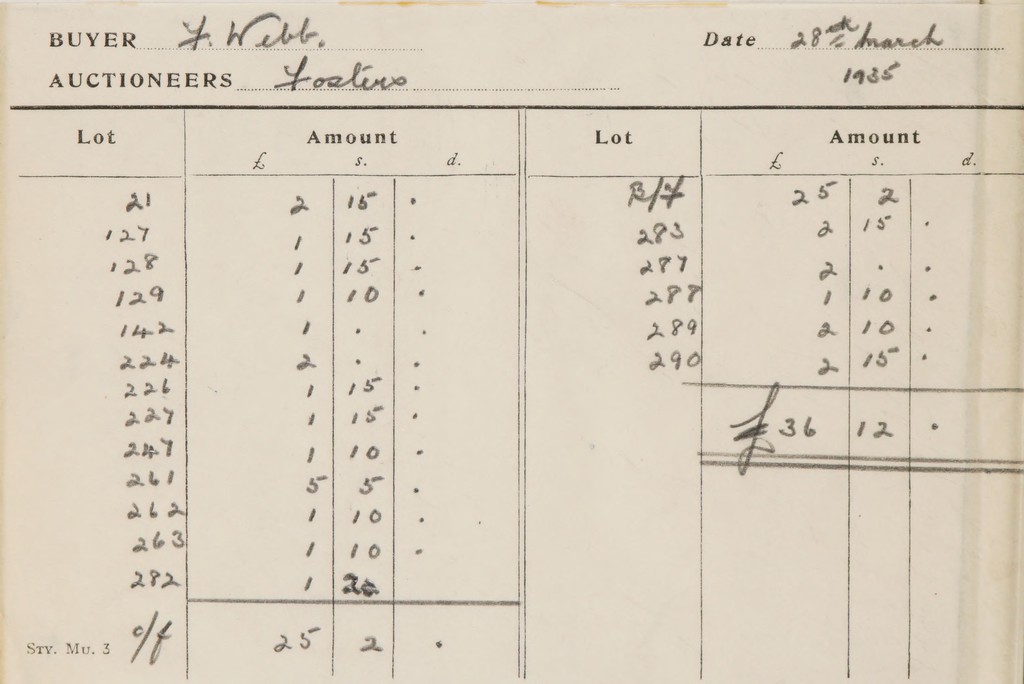 BUYER F. Webb. Date 28th March
AUCTIONEERS Fosters 1935
Lot Amount Lot Amount
£ s. d. £ s. d.
21 2 15 . B/F 25 2
127 1 15 . 283 2 15 .
128 1 15 . 287 2 . .
129 1 10 . 288 1 10 .
142 1 . . 289 2 10 .
224 2 . . 290 2 15 .
226 1 15 .
227 1 15 . £36 12 .
247 1 10 .
261 5 5 .
262 1 10 .
263 1 10 .
282 1
STY. MU. 3 c/f 25 2 .